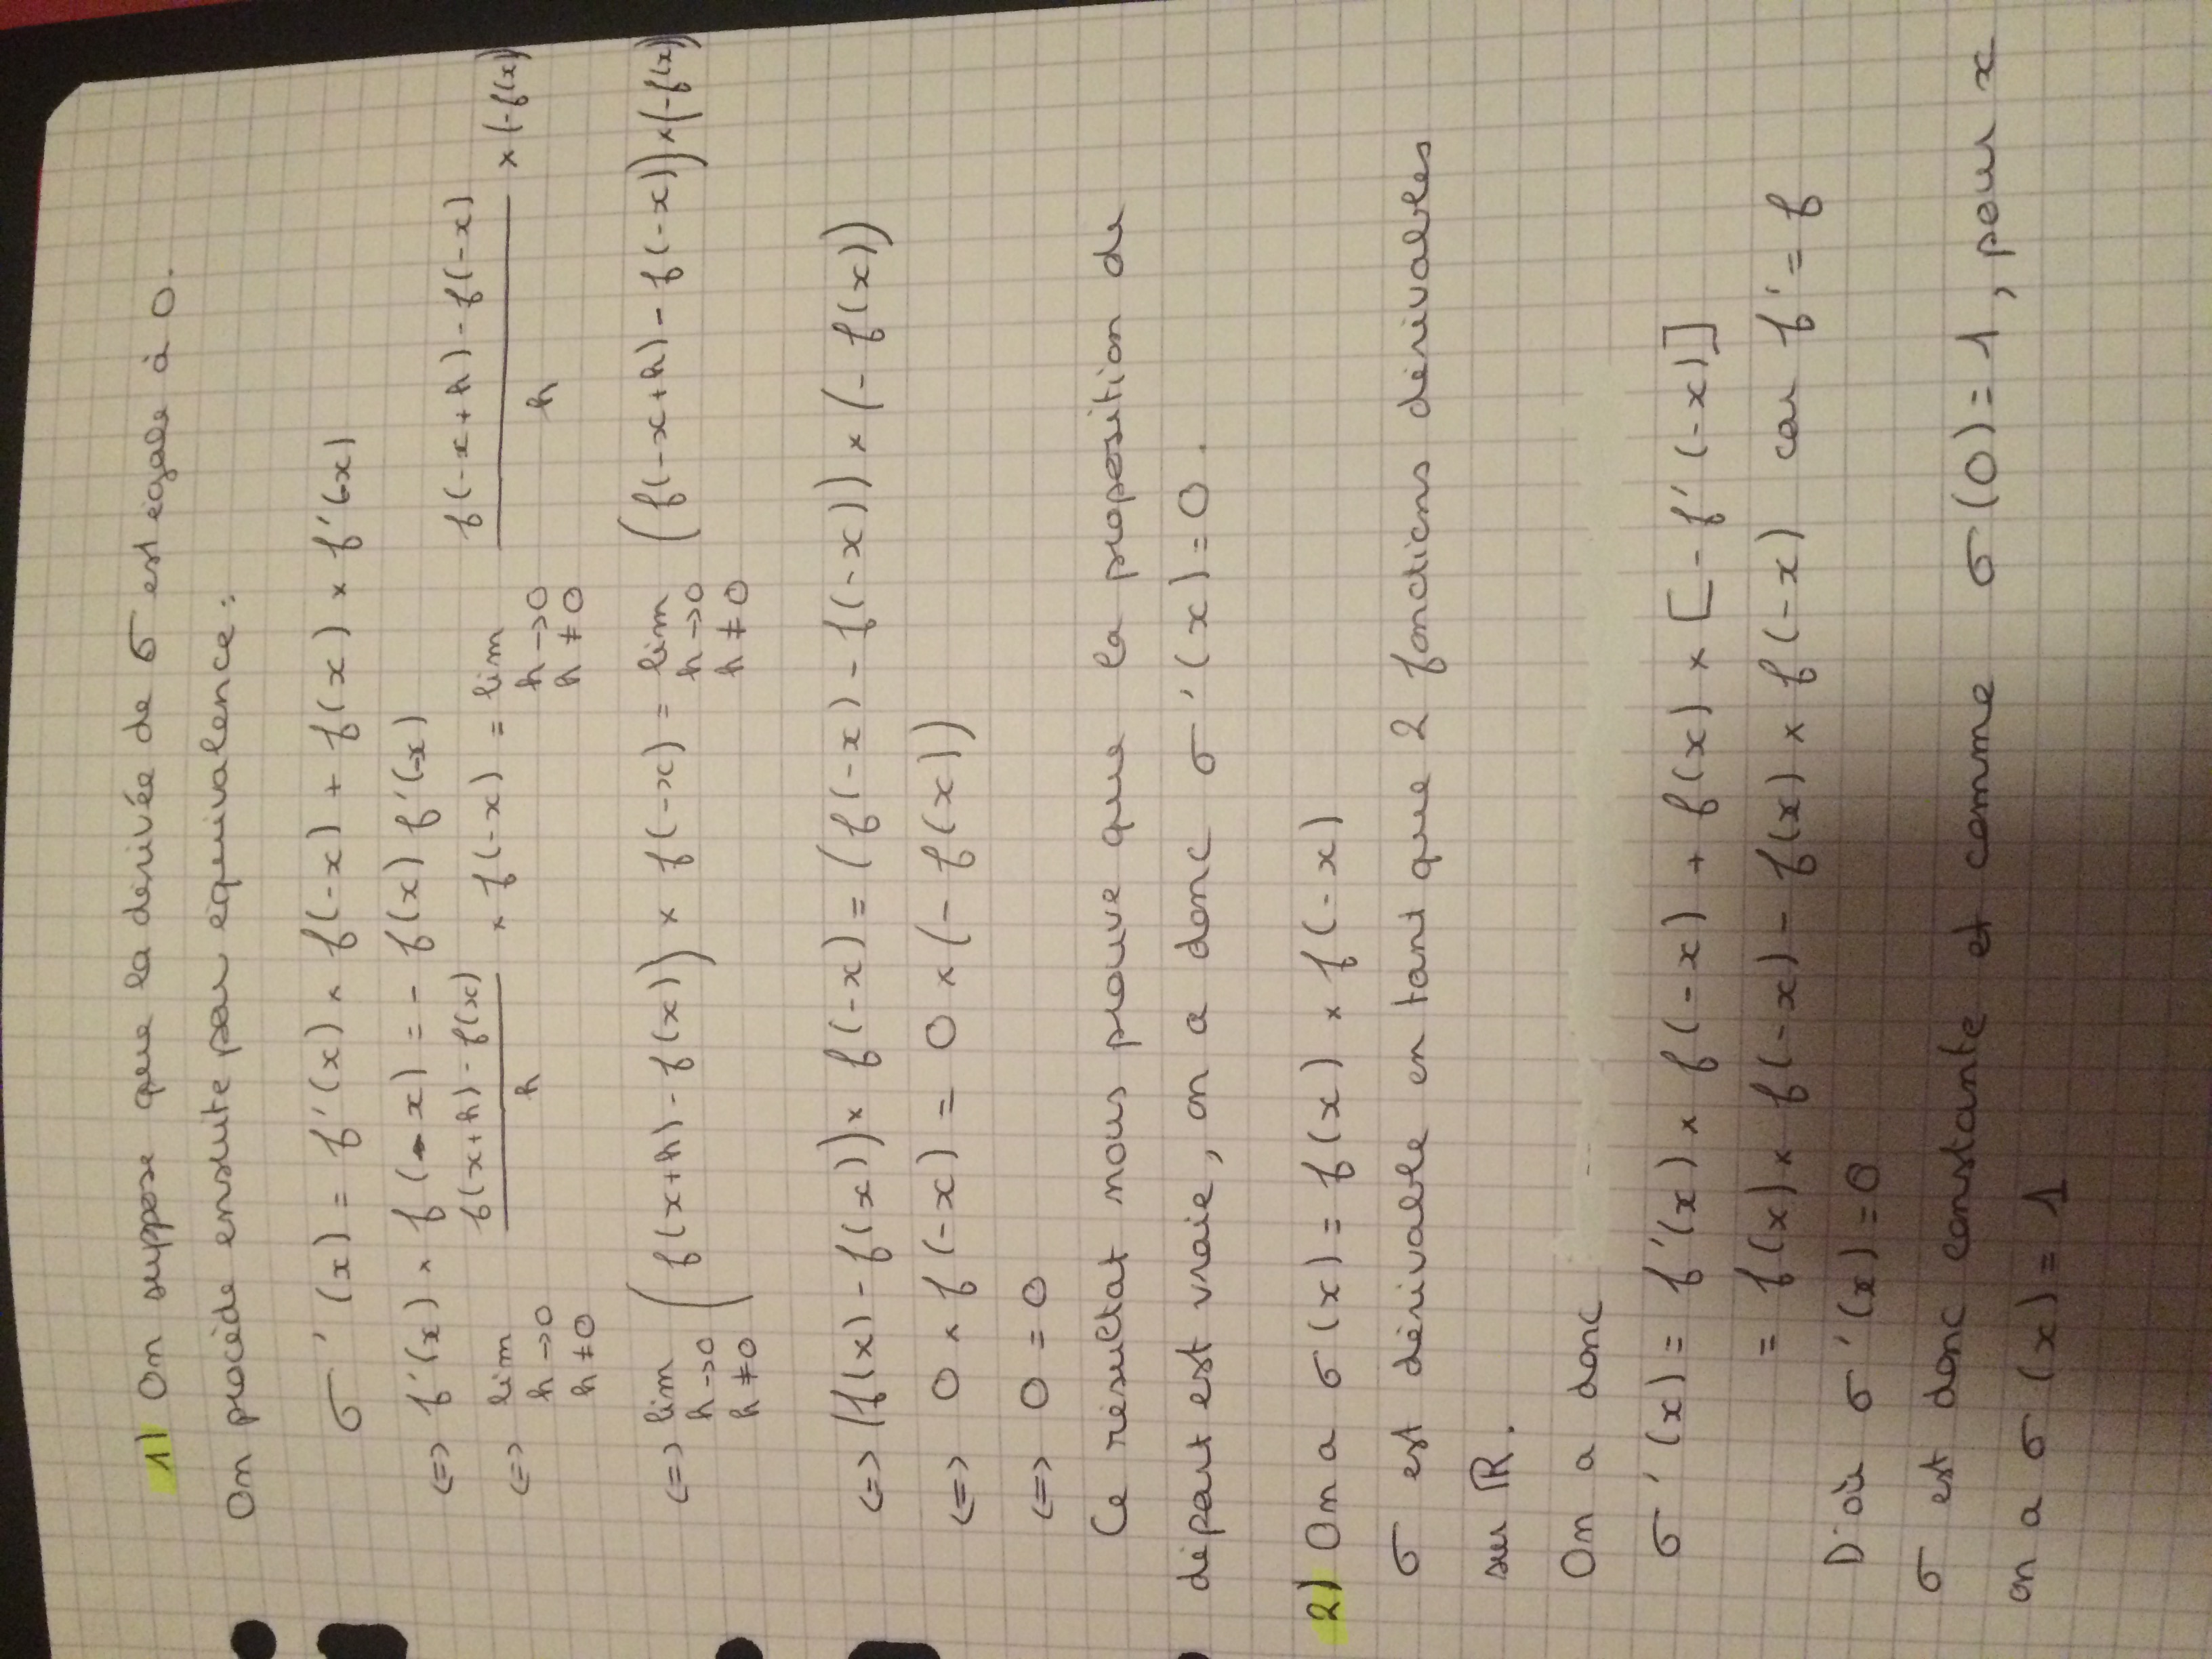 1) On suppose que la dérivée de σ est égale à 0.
On procède ensuite par équivalence :
σ'(x) = f'(x) × f(-x) + f(x) × f'(-x)
<=> f'(x) × f(-x) = - f(x) f'(-x)
<=> lim h→0 h≠0 (f(x+h) - f(x))/h × f(-x) = lim h→0 h≠0 (f(-x+h) - f(-x))/h × (-f(x))
<=> lim h→0 h≠0 (f(x+h) - f(x)) × f(-x) = lim h→0 h≠0 (f(-x+h) - f(-x)) × (-f(x))
<=> (f(x) - f(x)) × f(-x) = (f(-x) - f(-x)) × (- f(x))
<=> 0 × f(-x) = 0 × (- f(x))
<=> 0 = 0
Ce résultat nous prouve que la proposition de
départ est vraie, on a donc σ'(x) = 0.
2) On a σ(x) = f(x) × f(-x)
σ est dérivable en tant que 2 fonctions dérivables
sur ℝ.
On a donc
σ'(x) = f'(x) × f(-x) + f(x) × [- f'(-x)]
= f(x) × f(-x) - f(x) × f(-x) car f' = f
D'où σ'(x) = 0
σ est donc constante et comme σ(0) = 1, pour x
on a σ(x) = 1